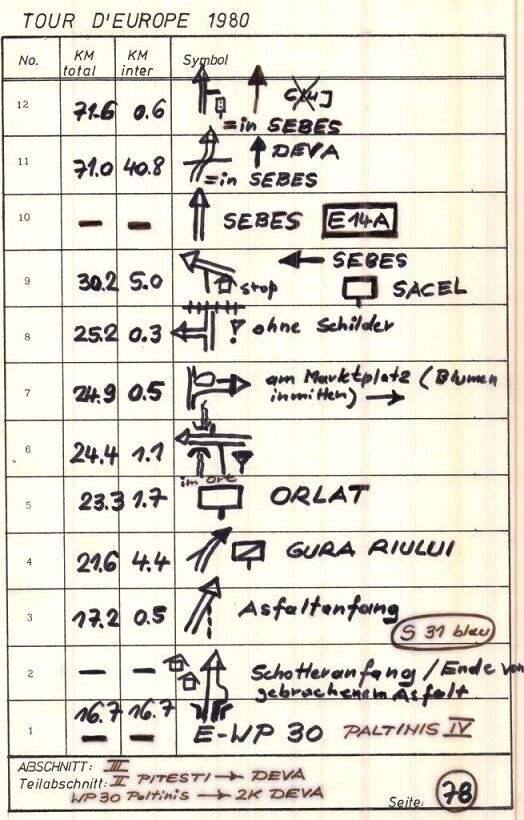 TOUR D'EUROPE 1980
No. KM total KM inter Symbol
12 71.6 0.6 CLUJ
=in SEBES
11 71.0 40.8 DEVA
=in SEBES
10 — — SEBES E14A
9 30.2 5.0 SEBES
stop SACEL
8 25.2 0.3 ! ohne Schilder
7 24.9 0.5 am Marktplatz (Blumen
inmitten)
6 24.4 1.1
im ort
5 23.3 1.7 ORLAT
4 21.6 4.4 GURA RIULUI
3 17.2 0.5 Asfaltanfang
S 31 blau
2 — — Schotteranfang / Ende von
gebrochenem Asfalt
16.7 16.7
1 — — E-WP 30 PALTINIS IV
ABSCHNITT: III
Teilabschnitt: II PITESTI → DEVA
WP 30 Paltinis → ZK DEVA
Seite: 78